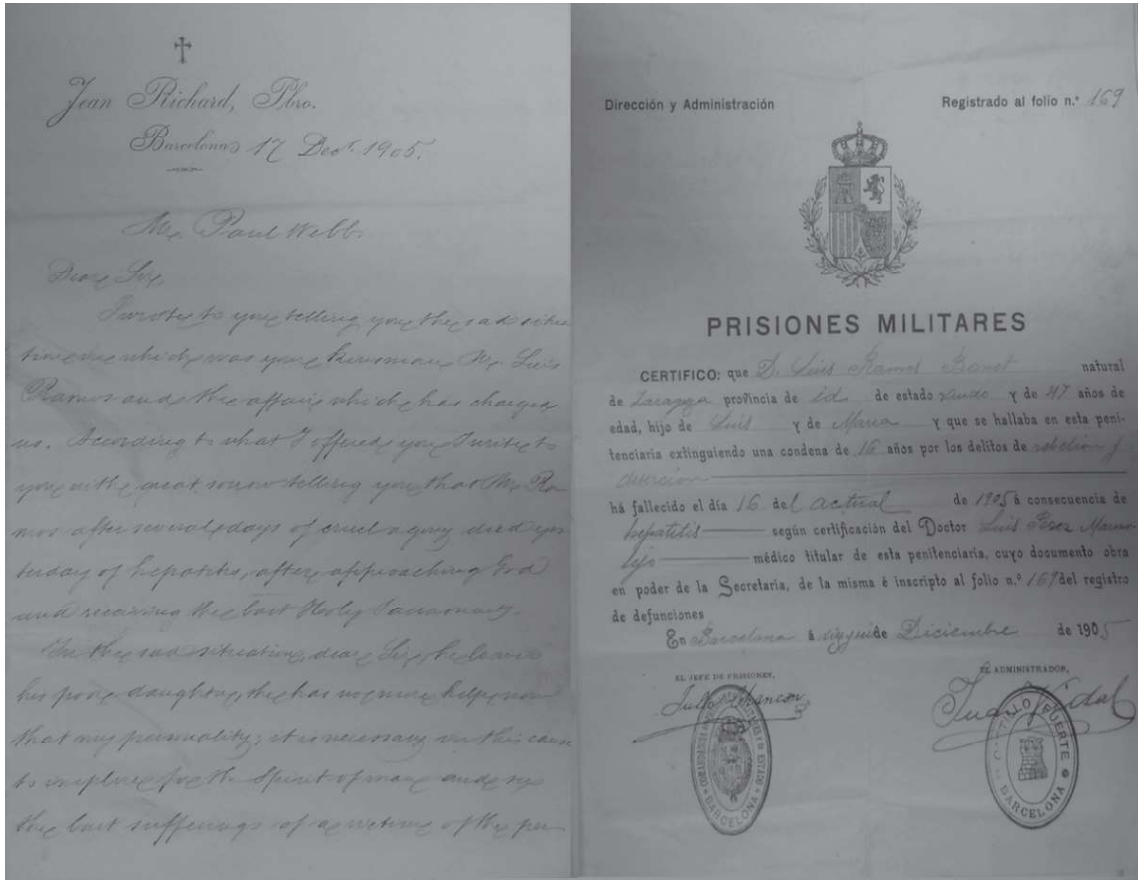 Jean Richard, Pbro.
Barcelona 17 Decr. 1905.
Mr. Paul Webb.
Dear Sir,
I wrote to you telling you the sad situa
tion in which was your kinsman Mr. Luis
Ramos and the affair which has charged
us. According to what I offered you I write to
you with great sorrow telling you that Mr. Ra
mos after several days of cruel agony died yes
terday of hepatitis, after approaching God
and receiving the last Holy
In the sad situation, dear Sir, he leaves
his poor daughter, the has no more help now
that my personality; it is necessary in this cause
to implore for the Spirit of man and see
the last sufferings of a victim of the per
Dirección y Administración
Registrado al folio n.° 169
PRISIONES MILITARES
CERTIFICO: que D. Luis Ramos natural
de Zaragoza provincia de id. de estado viudo y de 47 años de
edad, hijo de Luis y de Maria y que se hallaba en esta peni-
tenciaria extinguiendo una condena de 16 años por los delitos de rebelion y
desercion
há fallecido el día 16 del actual de 1905 á consecuencia de
hepatitis según certificación del Doctor Luis Perez Marmo
lejo médico titular de esta penitenciaría, cuyo documento obra
en poder de la Secretaría, de la misma é inscripto al folio n.° 169 del registro
de defunciones
En Barcelona á de Diciembre de 1905
EL JEFE DE PRISIONES,
EL ADMINISTRADOR,
Juan Vidal
BARCELONA
CASTILLO FUERTE
BARCELONA